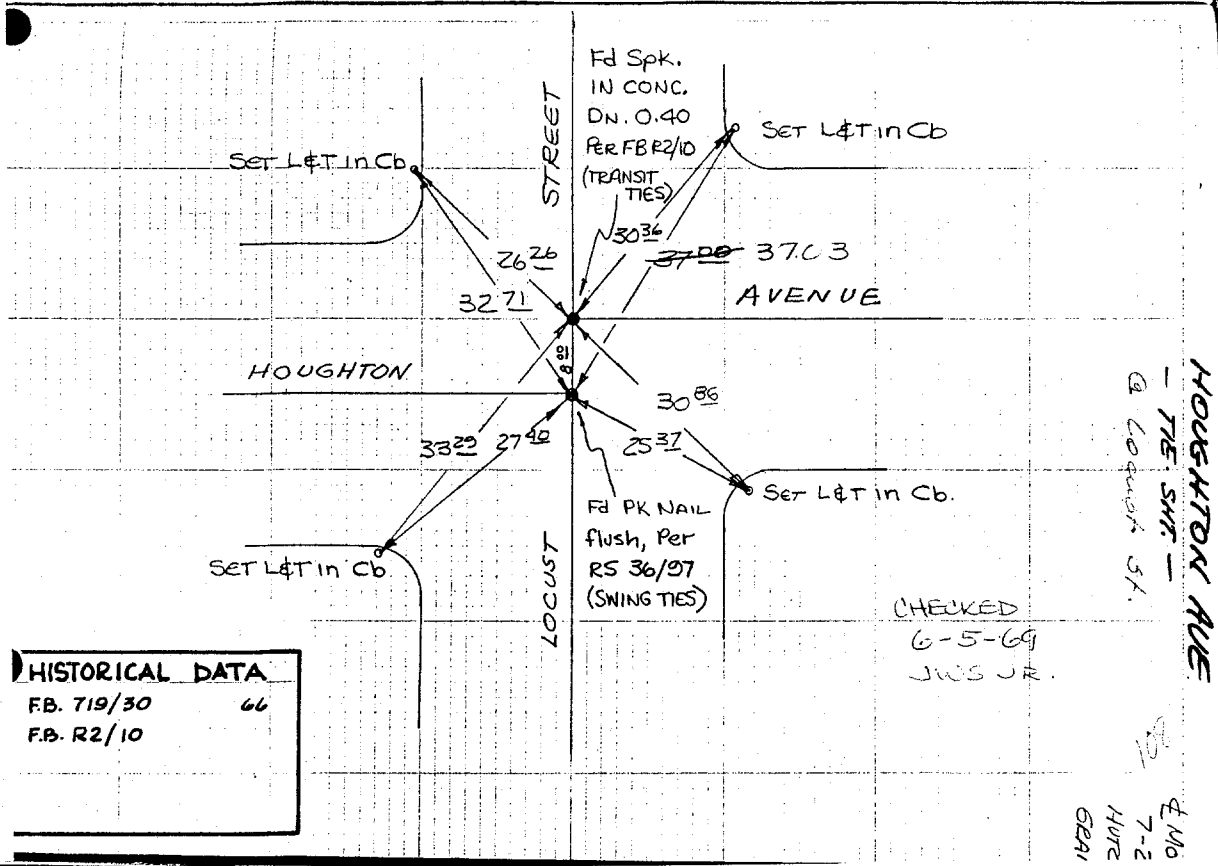 Fd Spk.
IN CONC.
DN. 0.40
PER FB R2/10
(TRANSIT
TIES)
STREET
SET L&T in Cb
SET L&T in Cb
30 36
26 26
37 00 37.03
32 71
AVENUE
8 00
HOUGHTON
30 86
33 29
27 40
25 37
SET L&T in Cb.
Fd PK NAIL
flush, Per
RS 36/97
(SWING TIES)
SET L&T in Cb
LOCUST
CHECKED
6-5-69
JWS JR.
HISTORICAL DATA
F.B. 719/30 66
F.B. R2/10
HOUGHTON AVE
- TIE. SHT. -
@ Locust St.
7-2